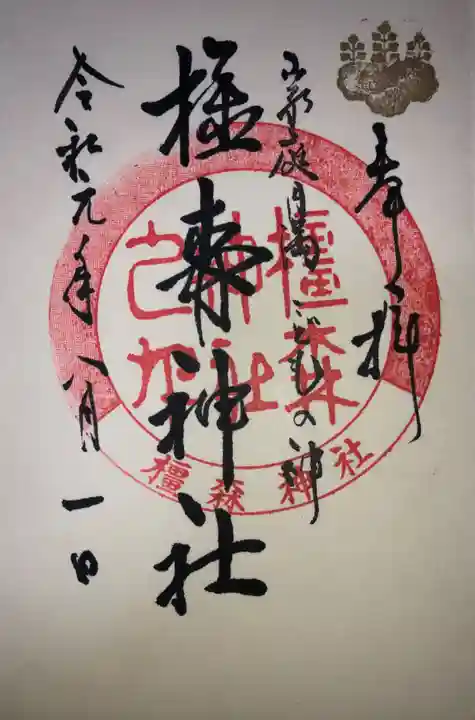 奉拝
の神
橿森神社
令和元年八月一日
橿森
神社
橿森神社